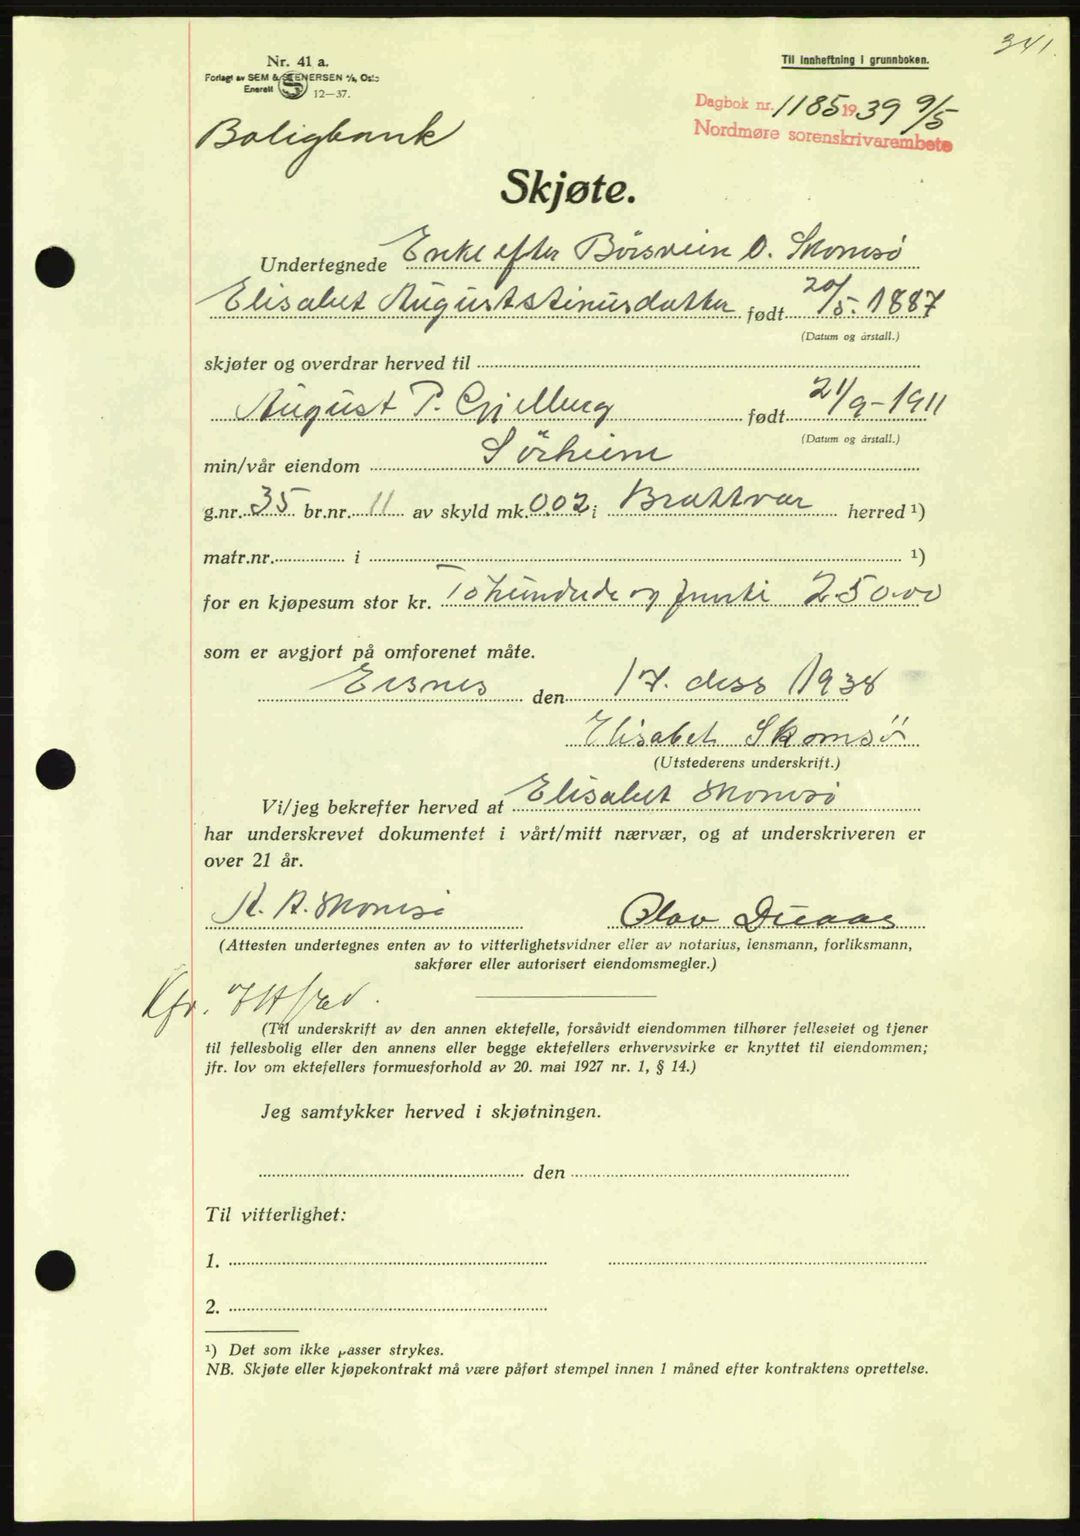 341.
Nr. 41 a.
Forlagt av SEM & STENERSEN A/S, Oslo
Enerett 12—37.
Til innheftning i grunnboken.
Dagbok nr. 1185 1939 9/5
Nordmøre sorenskrivarembete
Boligbank
Skjøte.
Undertegnede Enke efter O. Skomsø
Elisabet Auguststinusdatter født 20/5. 1887
(Datum og årstall.)
skjøter og overdrar herved til
August P. Gjelberg født 21/9-1911
(Datum og årstall.)
min/vår eiendom Sörheim
g.nr. 35 br.nr. 11 av skyld mk. 0.02 i Brattvær herred ¹)
matr.nr. i ¹)
for en kjøpesum stor kr. Tohundrede og femti 250.00
som er avgjort på omforenet måte.
den 17. des 1938
Elisabet Skomsö
(Utstederens underskrift.)
Vi/jeg bekrefter herved at Elisabet Skomsø
har underskrevet dokumentet i vårt/mitt nærvær, og at underskriveren er
over 21 år.
A. A. Skomsø Olav
(Attesten undertegnes enten av to vitterlighetsvidner eller av notarius, lensmann, forliksmann,
sakfører eller autorisert eiendomsmegler.)
(Til underskrift av den annen ektefelle, forsåvidt eiendommen tilhører felleseiet og tjener
til fellesbolig eller den annens eller begge ektefellers erhvervsvirke er knyttet til eiendommen;
jfr. lov om ektefellers formuesforhold av 20. mai 1927 nr. 1, § 14.)
Jeg samtykker herved i skjøtningen.
den
Til vitterlighet:
1.
2.
¹) Det som ikke passer strykes.
NB. Skjøte eller kjøpekontrakt må være påført stempel innen 1 måned efter kontraktens oprettelse.